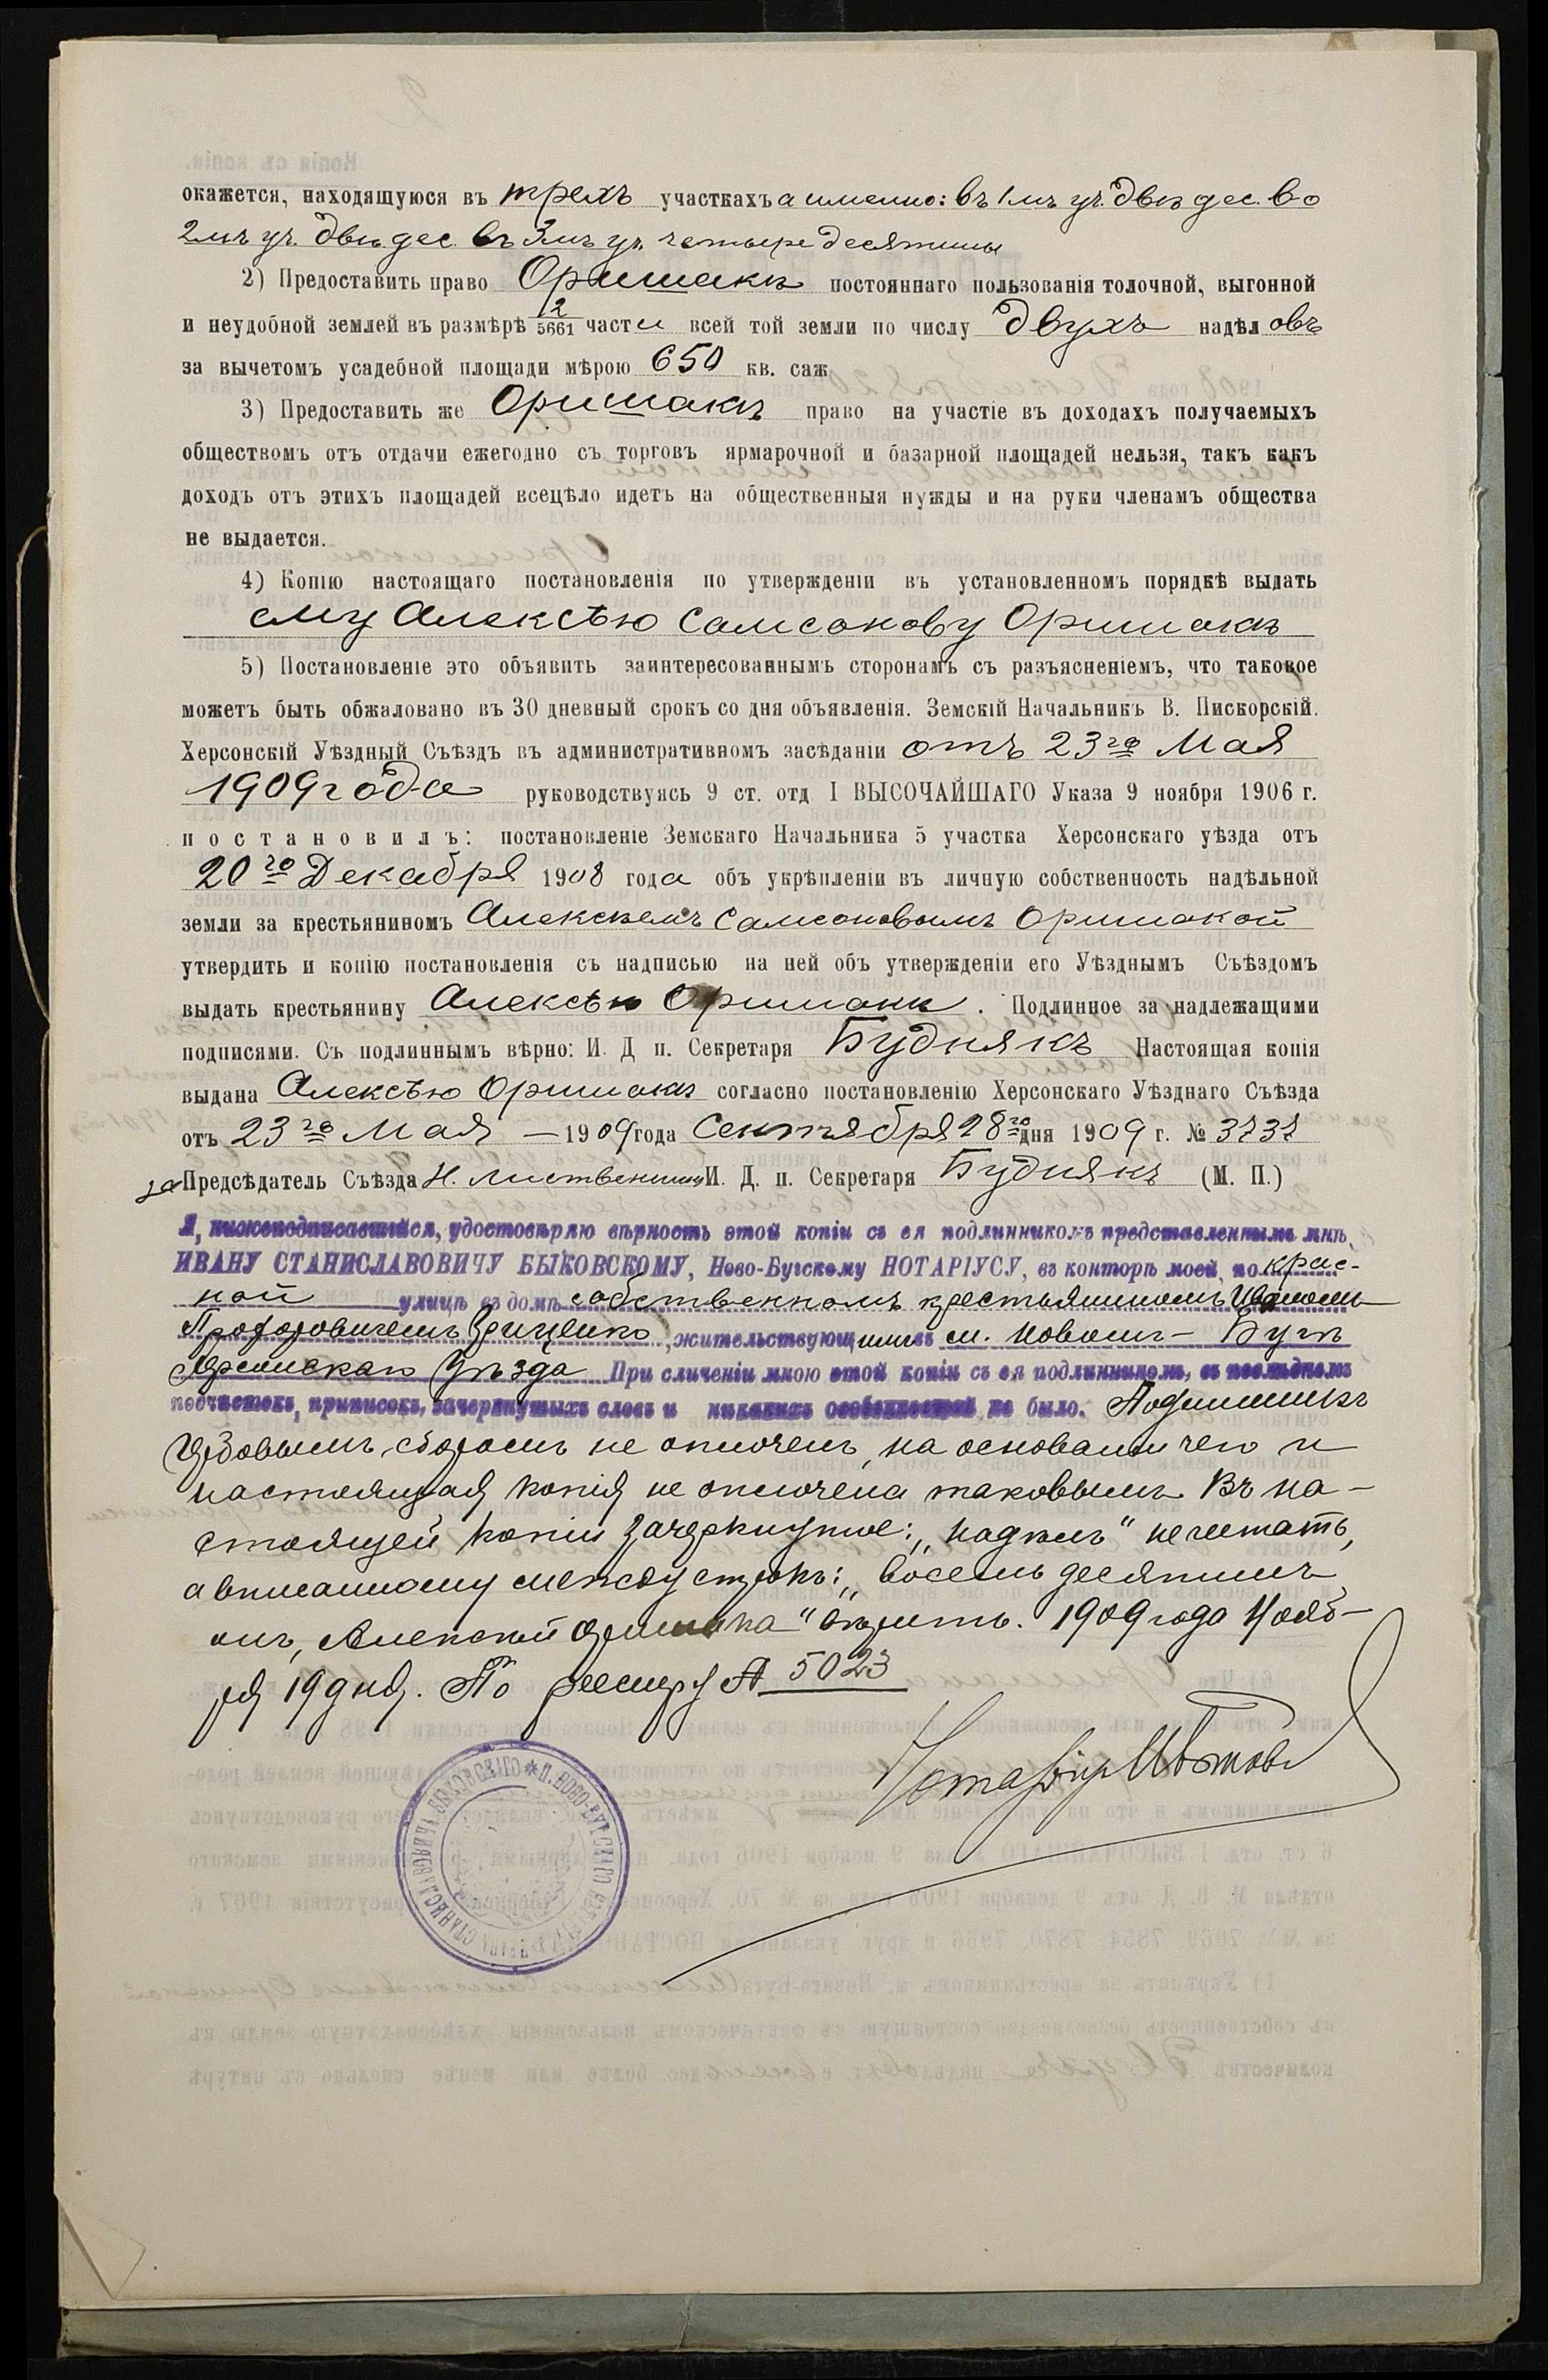 окажется, находящуюся въ трехъ участкахъ а именно: въ 1мъ уч. двѣ дес. во
2мъ уч. двѣ дес. въ 3мъ уч. четыре десятины
2) Предоставить право Оришакѣ постояннаго пользованія толочной, выгонной
и неудобной землей въ размѣрѣ 2/5661 части всей той земли по числу двухъ надѣловъ
за вычетомъ усадебной площади мѣрою 650 кв. саж
3) Предоставить же Оришакѣ право на участіе въ доходахъ получаемыхъ
обществомъ отъ отдачи ежегодно съ торговъ ярмарочной и базарной площадей нельзя, такъ какъ
доходъ отъ этихъ площадей всецѣло идетъ на общественныя нужды и на руки членамъ общества
не выдается.
4) Копію настоящаго постановленія по утвержденіи въ установленномъ порядкѣ выдать
ему Алексѣю Самсонову Оришакѣ
5) Постановленіе это объявить заинтересованнымъ сторонамъ съ разъясненіемъ, что таковое
можетъ быть обжаловано въ 30 дневный срокъ со дня объявленія. Земскій Начальникъ В. Пискорскій.
Херсонскій Уѣздный Съѣздъ въ административномъ засѣданіи отъ 23го Мая
1909 года руководствуясь 9 ст. отд I ВЫСОЧАЙШАГО Указа 9 ноября 1906 г.
постановилъ: постановленіе Земскаго Начальника 5 участка Херсонскаго уѣзда отъ
20го Декабря 1908 года объ укрѣпленіи въ личную собственность надѣльной
земли за крестьяниномъ Алексѣемъ Самсоновымъ Оришакой
утвердить и копію постановленія съ надписью на ней объ утвержденіи его Уѣзднымъ Съѣздомъ
выдать крестьянину Алексѣю Оришакѣ. Подлинное за надлежащими
подписями. Съ подлиннымъ вѣрно: И. Д п. Секретаря Буднякъ Настоящая копія
выдана Алексѣю Оришакѣ согласно постановленію Херсонскаго Уѣзднаго Съѣзда
отъ 23го Мая — 1909 года Сентября 28го дня 1909 г. № 3737
за Предсѣдатель Съѣзда Н. И. Д. п. Секретаря Буднякъ (М. П.)
Я, нижеподписавшійся, удостовѣряю вѣрность этой копіи съ ея подлинникомъ представленнымъ мнѣ,
ИВАНУ СТАНИСЛАВОВИЧУ БЫКОВСКОМУ, Ново-Бугскому НОТАРІУСУ, въ конторѣ моей, по крас-
ной улицѣ въ домѣ собственномъ крестьяниномъ Иваномъ
Грищенко, жительствующимъ въ м. Новомъ-Бугѣ
Херсонскаго Уѣзда При сличеніи мною этой копіи съ ея подлинникомъ, въ послѣднемъ
подчистокъ, приписокъ, зачеркнутыхъ словъ и никакихъ особенностей не было. Подлинникъ
гербовымъ сборомъ не оплоченъ, на основаніи чего и
настоящая копія не оплочена таковымъ. Въ на-
стоящей копіи зачеркнутое: „надѣлъ" не читать,
а вписанному между строкъ: „восемь десятинъ
омъ, Алексѣй Оришака" вѣрить. 1909 года Нояб-
ря 19 дня. По реестру № 5023
Нотаріусъ ИБыковскій
* П. НОВО-БУГСКАГО НОТАРІУСА ИВАНА СТАНИСЛАВОВИЧА БЫКОВСКАГО